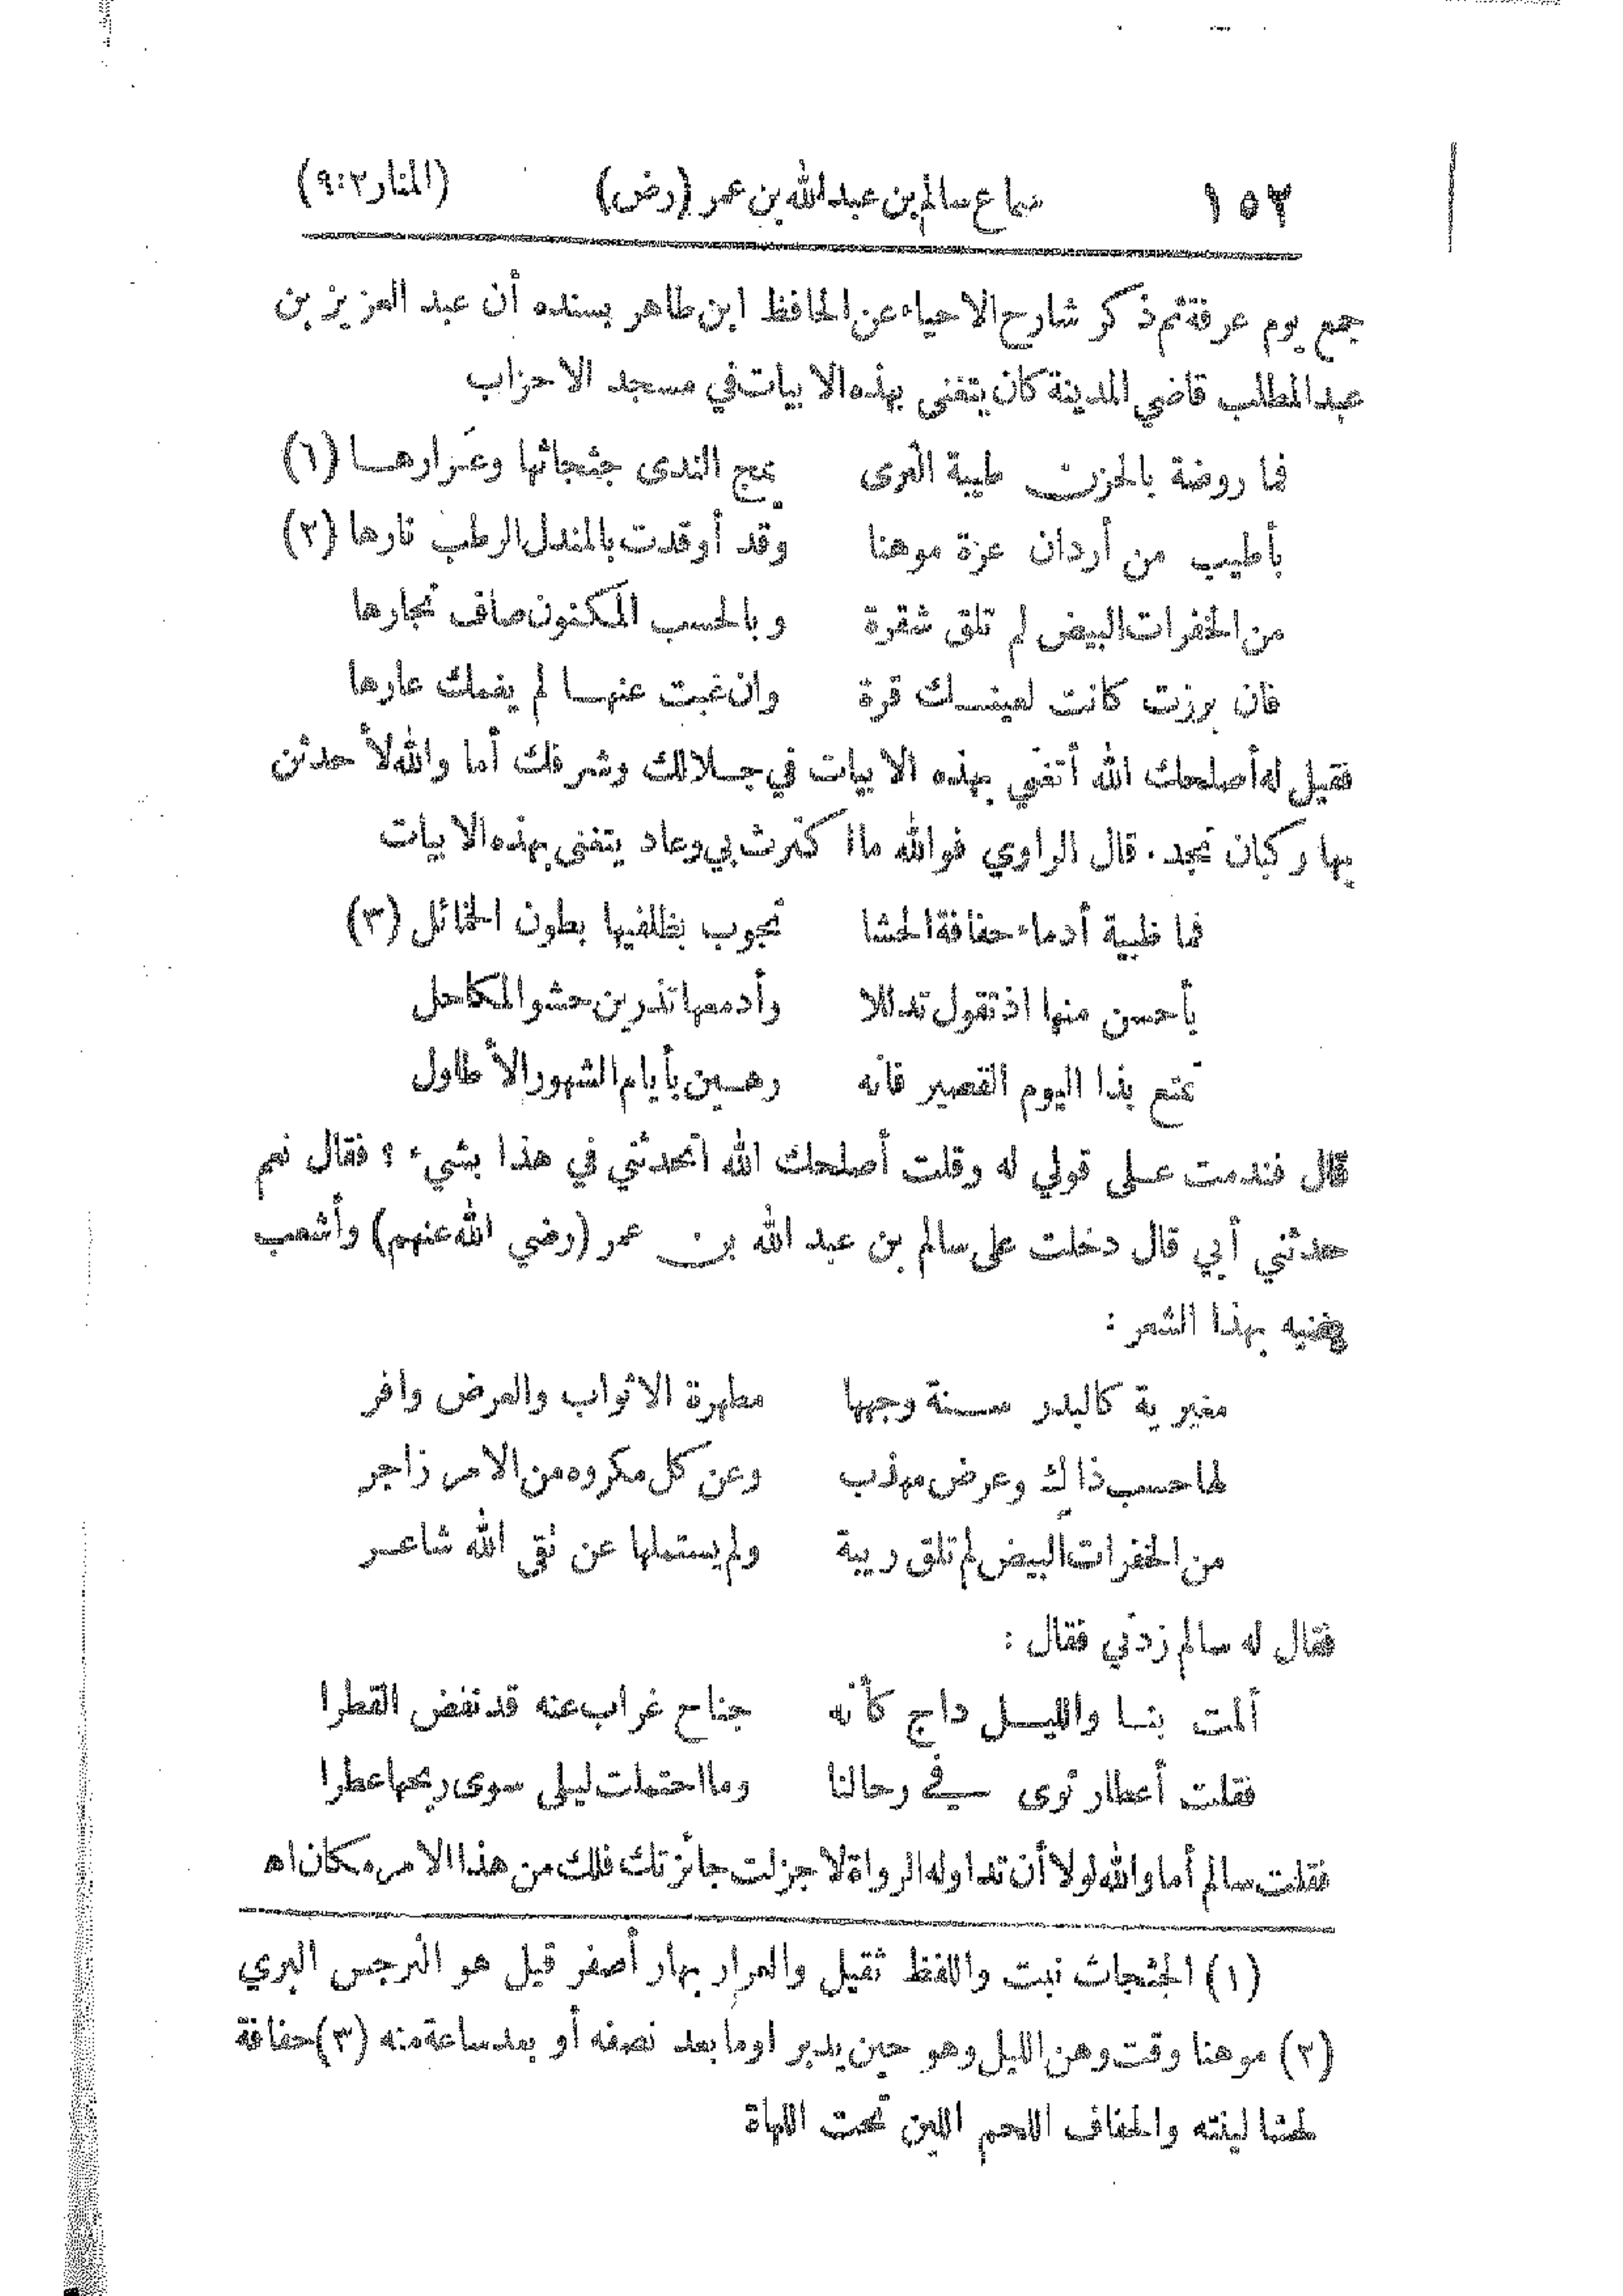 ١٥٢ سماع سالم بن عبد الله بن عمر (رض) (المنار ٩:٢)
جمع يوم عرفة ثم ذكر شارح الاحياء عن الحافظ ابن طاهر بسنده أن عبد العزيز بن
عبد المطلب قاضي المدينة كان يتغنى بهذه الابيات في مسجد الاحزاب
فما روضة بالحزن طيبة الثرى يمج الندى جثجاثها وعرارها (١)
بأطيب من أردان عزة موهنا وقد أوقدت بالمندل الرطب نارها (٢)
من الخفرات البيض لم تلق شقرة وبالحسب المكنون صاف نجارها
فان برزت كانت لعينك قرة وان غبت عنها لم يغمك عارها
فقيل له أصلحك الله أتغني بهذه الابيات في جلالك وشرفك أما والله لأحدثن
بها ركبان نجد. قال الراوي فوالله ما اكترث بي وعاد يتغنى بهذه الابيات
فما ظبية أدماء حفافة الحشا تجوب بظلفيها بطون الخمائل (٣)
بأحسن منها اذ تقول تدللا وأدمعها تذرين حشو المكاحل
تمتع بذا اليوم القصير فانه رهين بأيام الشهور الأطاول
قال فندمت على قولي له وقلت أصلحك الله اتحدثني في هذا بشيء ؟ فقال نعم
حدثني أبي قال دخلت على سالم بن عبد الله بن عمر (رضي الله عنهم) وأشعب
يغنيه بهذا الشعر :
مغيرية كالبدر سنة وجهها مطهرة الاثواب والعرض وافر
لها حسب ذاك وعرض مهذب وعن كل مكروه من الامر زاجر
من الخفرات البيض لم تلق ريبة ولم يستملها عن تقى الله شاعر
فقال له سالم زدني فقال :
ألمت بنا والليل داج كأنه جناح غراب عنه قد نفض القطرا
فقلت أعطار ثوى في رحالنا وما احتملت ليلى سوى ريحها عطرا
فقلت سالم أما والله لولا أن تداوله الرواة لاجزلت جائزتك فلك من هذا الامر مكان اه
(١) الجثجاث نبت واللفظ ثقيل والعرار بهار أصفر قيل هو النرجس البري
(٢) موهنا وقت وهن الليل وهو حين يدبر او ما بعد نصفه أو بعد ساعة منه (٣) حفافة
لحشا لينته والحفاف اللحم اللين تحت اللهاة